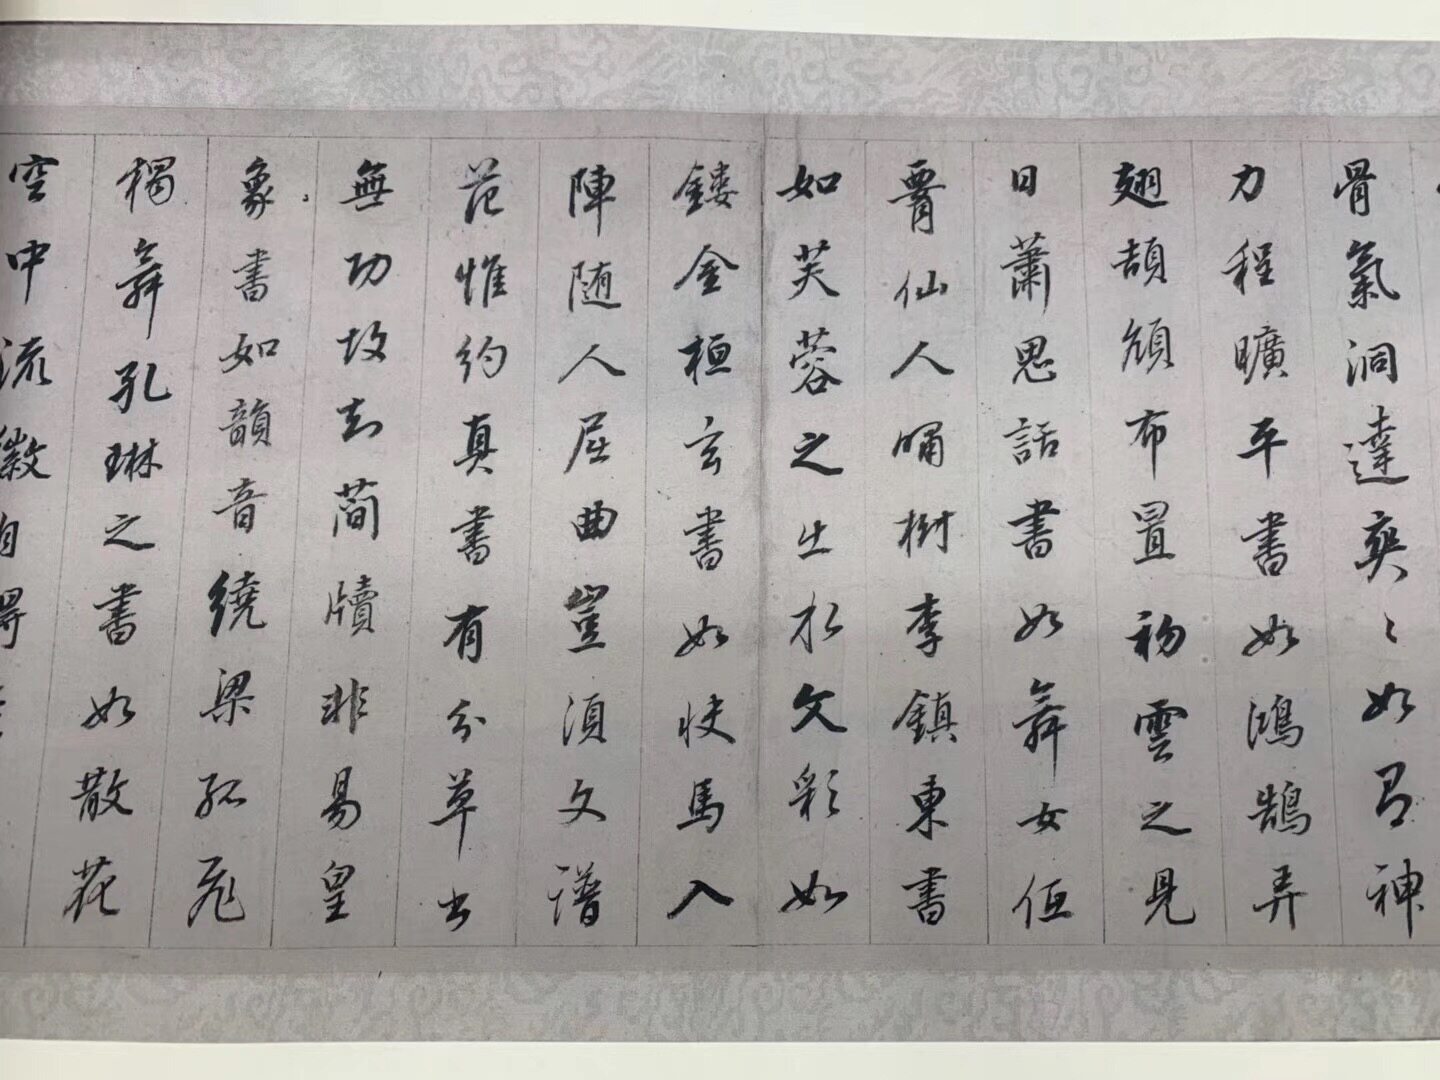 骨氣洞達爽〻如有神
力程曠平書如鴻鵠弄
翅頡頏布置初雲之見
日蕭思話書如舞女低
腰仙人嘯樹李鎮東書
如芙蓉之出於文彩如
鏤金桓玄書如快馬入
陣随人屈曲豈須文譜
范惟約真書有分草書
無功故知簡牘非易皇
象書如韻音繞梁孤飛
獨舞孔琳之書如散花
空中流徽自得